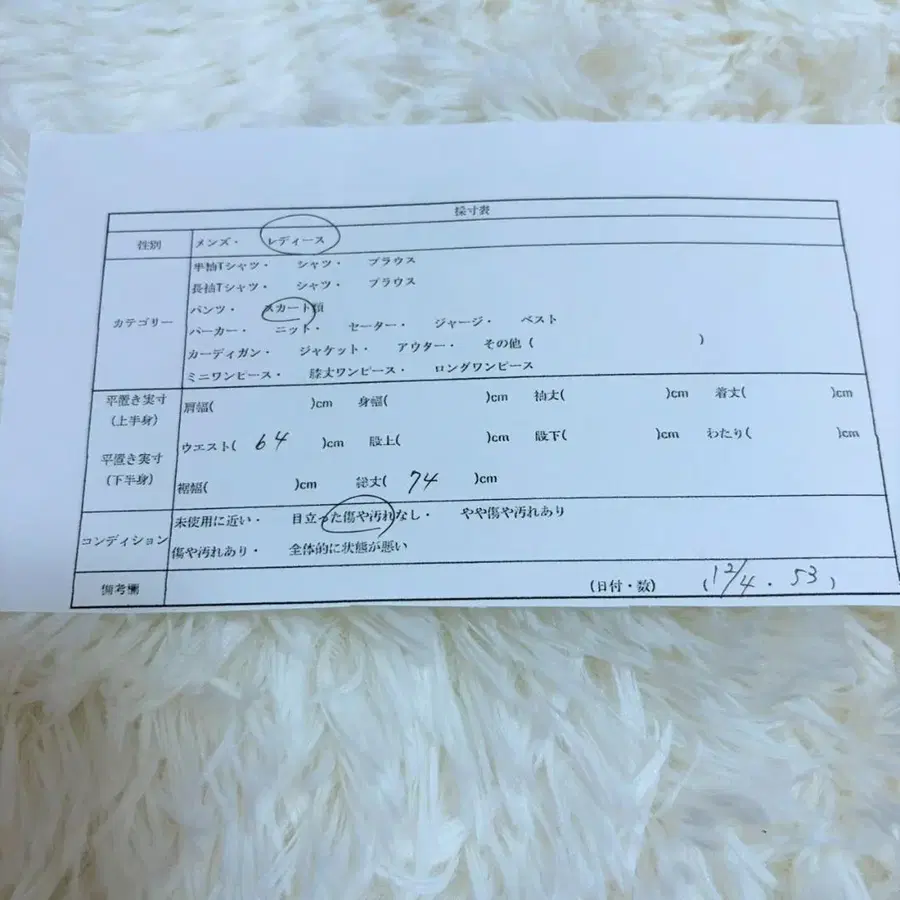 採寸表
性別 メンズ・ レディース
カテゴリー
半袖Tシャツ・ シャツ・ ブラウス
長袖Tシャツ・ シャツ・ ブラウス
パンツ・ スカート類
パーカー・ ニット・ セーター・ ジャージ・ ベスト
カーディガン・ ジャケット・ アウター・ その他 ( )
ミニワンピース・ 膝丈ワンピース・ ロングワンピース
平置き実寸
(上半身)
肩幅( )cm 身幅( )cm 袖丈( )cm 着丈( )cm
平置き実寸
(下半身)
ウエスト( 64 )cm 股上( )cm 股下( )cm わたり( )cm
裾幅( )cm 総丈( 74 )cm
コンディション
未使用に近い・ 目立った傷や汚れなし・ やや傷や汚れあり
傷や汚れあり・ 全体的に状態が悪い
備考欄 (日付・数) ( 12/4 . 53 )